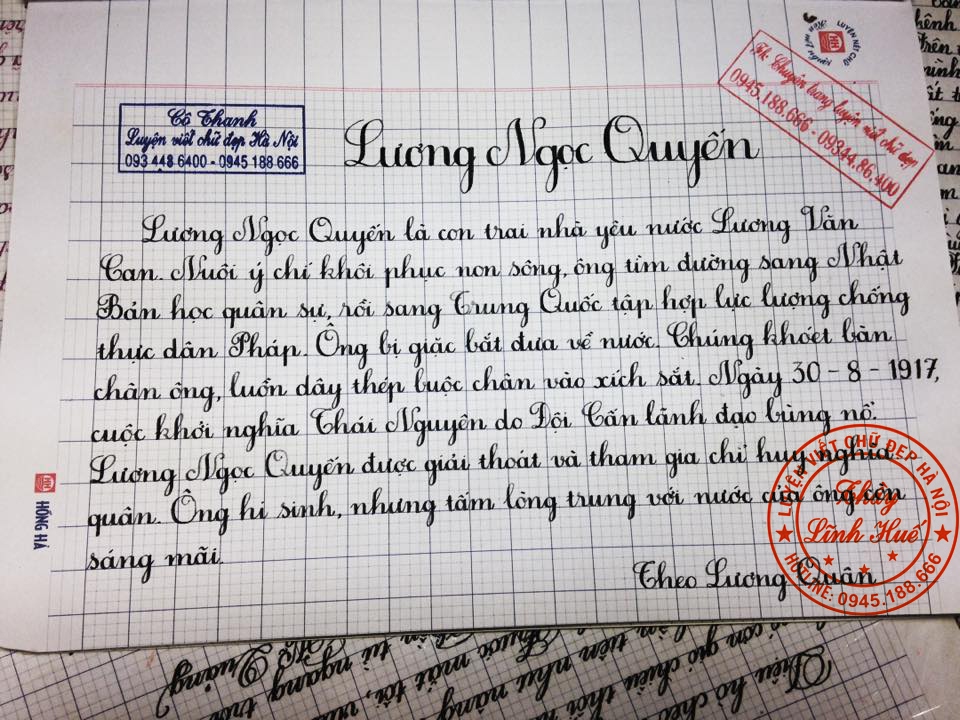 LUYỆN NÉT CHỮ
Cô Thanh
Luyện viết chữ đẹp Hà Nội
093 448 6400 - 0945 188 666
Tk: Chuyên trang luyện viết chữ đẹp
0945.188.666 - 09344.86.400
Lương Ngọc Quyến
Lương Ngọc Quyến là con trai nhà yêu nước Lương Văn
Can. Nuôi ý chí khôi phục non sông, ông tìm đường sang Nhật
Bản học quân sự, rồi sang Trung Quốc tập hợp lực lượng chống
thực dân Pháp. Ông bị giặc bắt đưa về nước. Chúng khoét bàn
chân ông, luồn dây thép buộc chân vào xích sắt. Ngày 30 - 8 - 1917,
cuộc khởi nghĩa Thái Nguyên do Đội Cấn lãnh đạo bùng nổ.
Lương Ngọc Quyến được giải thoát và tham gia chỉ huy nghĩa
quân. Ông hi sinh, nhưng tấm lòng trung với nước của ông còn
sáng mãi.
Theo Lương Quân
HỒNG HÀ
LUYỆN VIẾT CHỮ ĐẸP HÀ NỘI
Thầy
Lĩnh Huế
HOTLINE: 0945.188.666